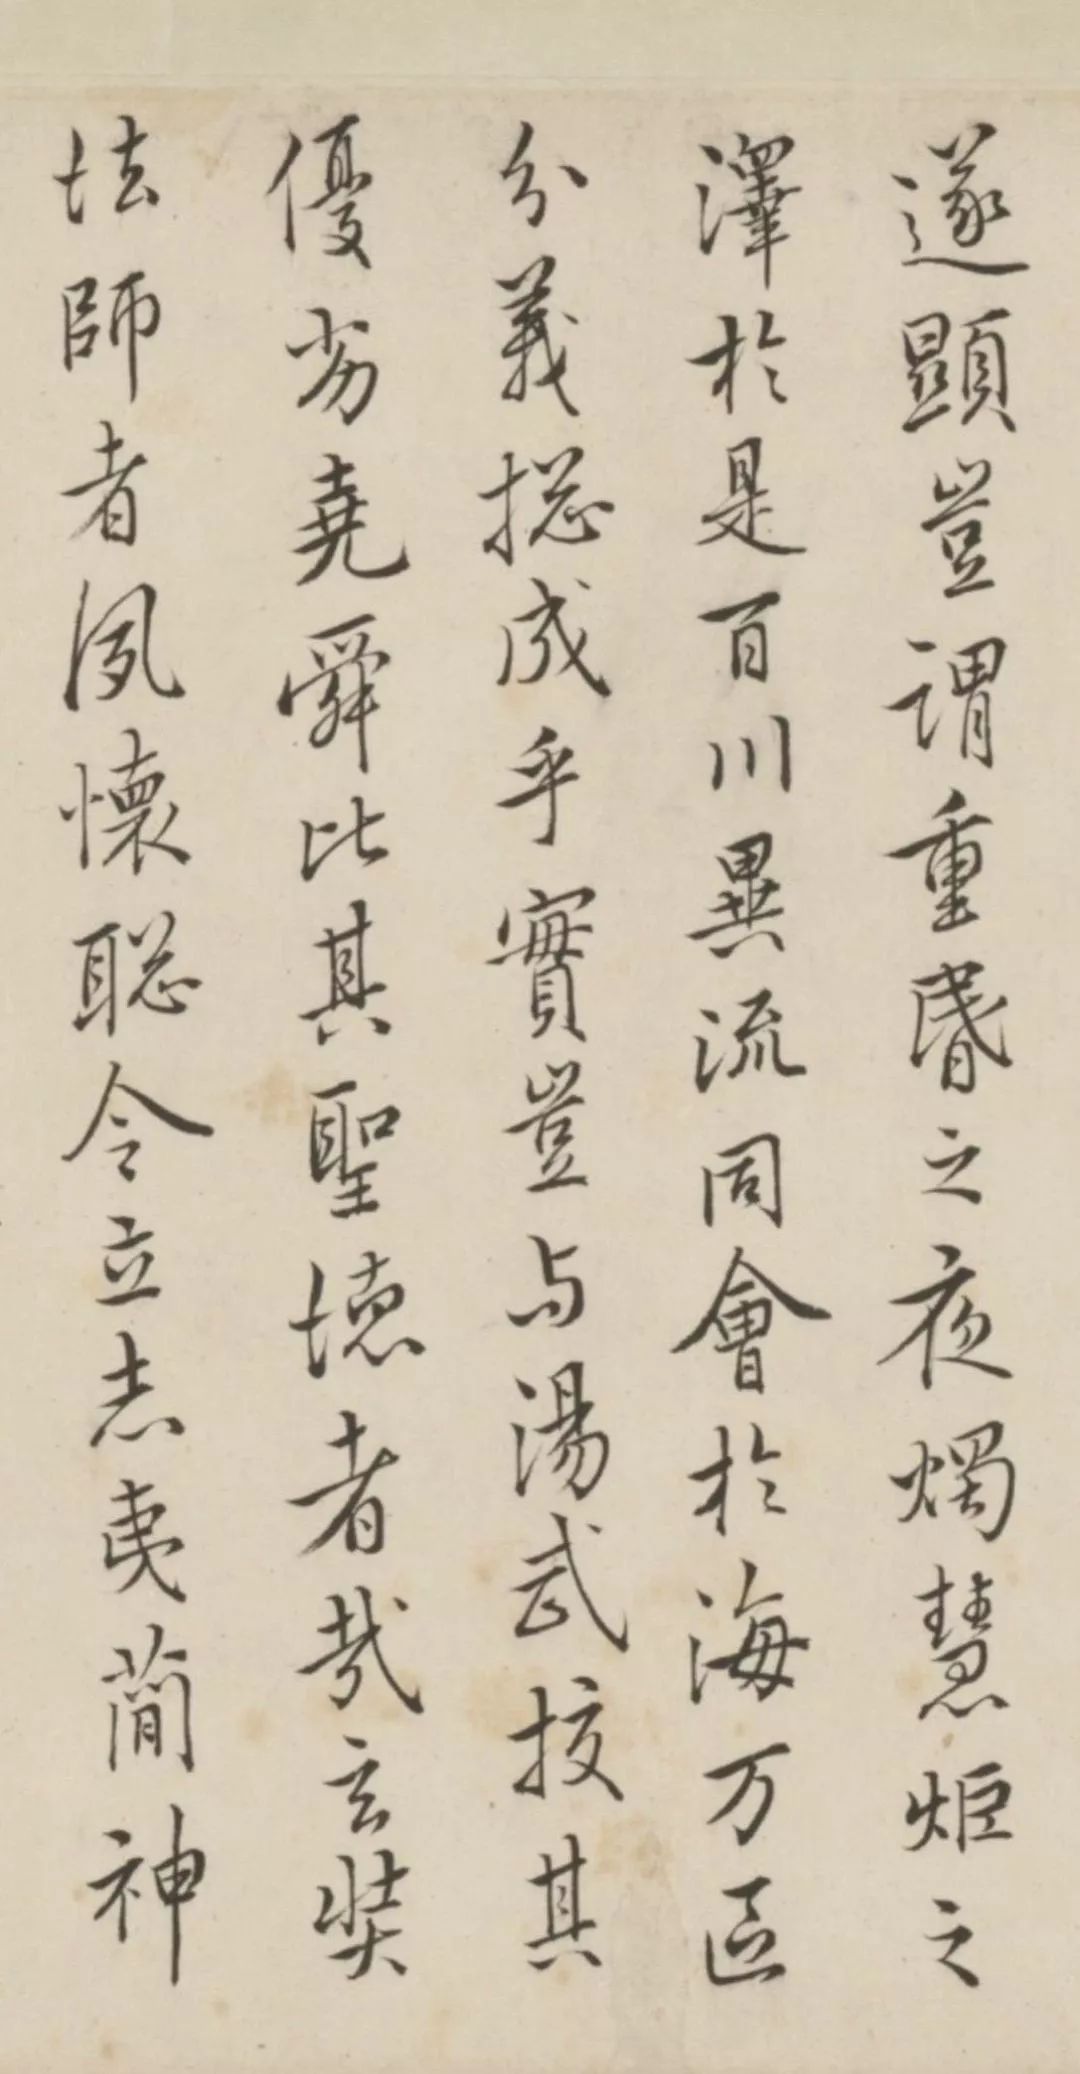 遂顯豈謂重昬之夜燭慧炬之
澤於是百川異流同會於海万區
分義揔成乎實豈与湯武挍其
優劣堯舜比其聖徳者哉玄奘
法師者夙懷聡令立志夷簡神